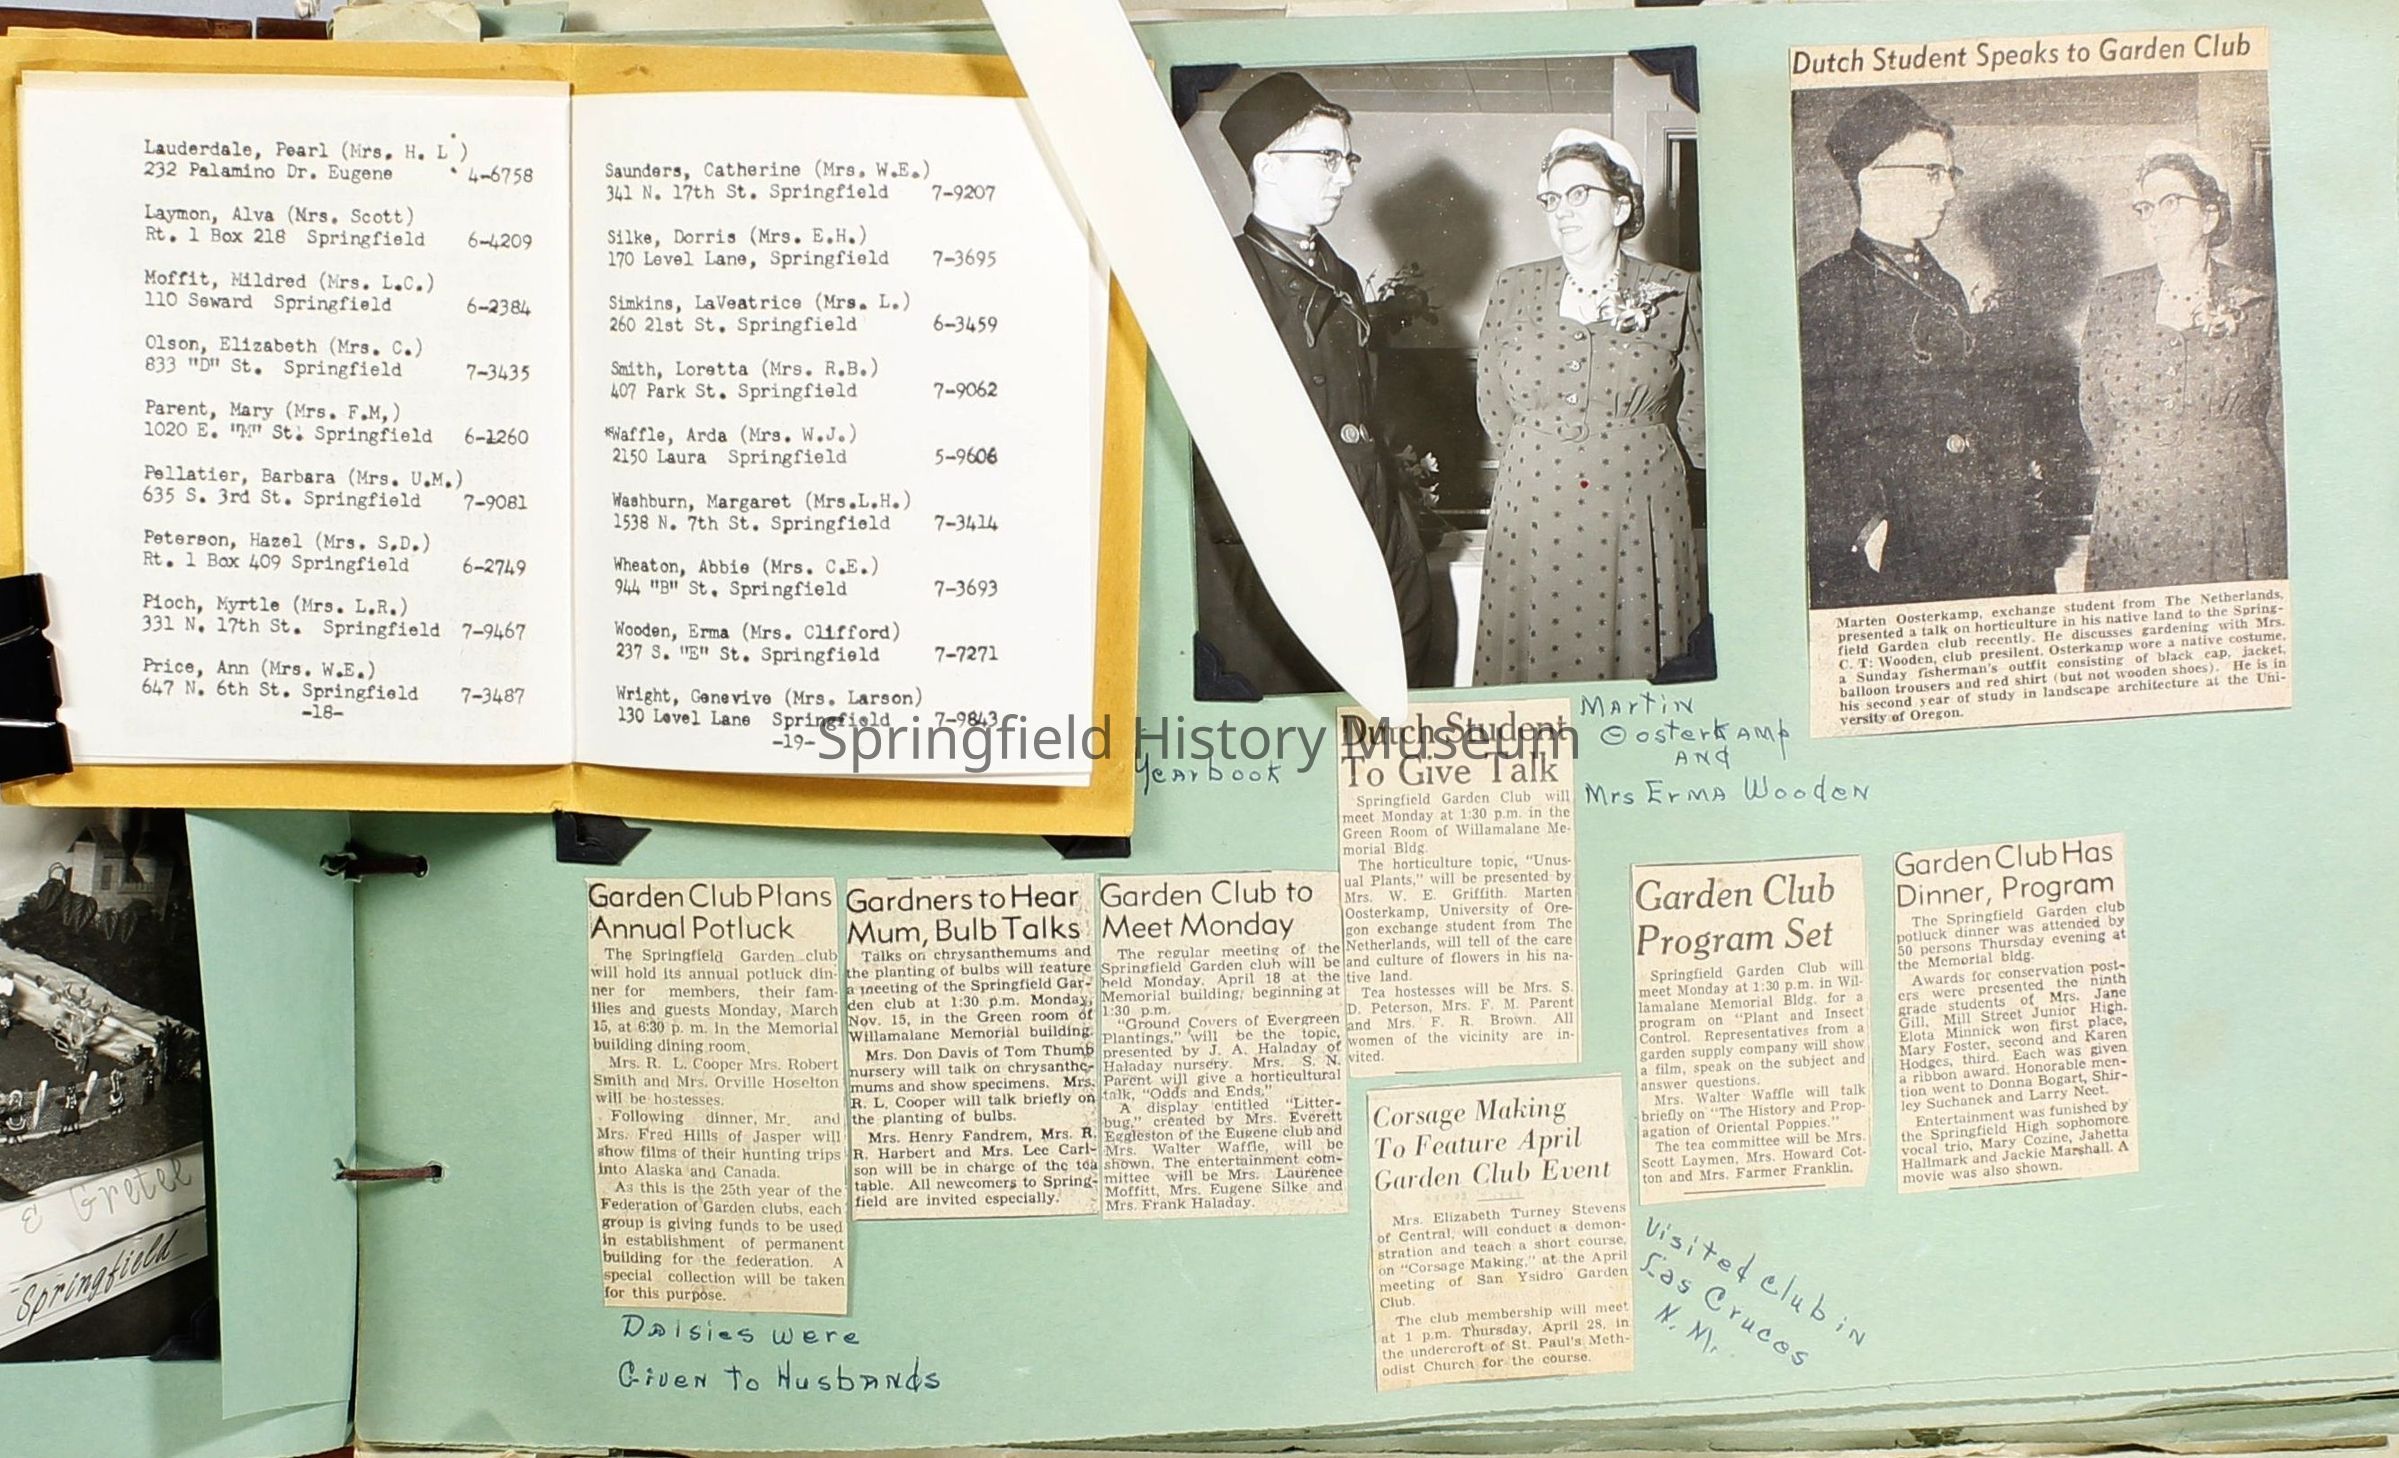 Lauderdale, Pearl (Mrs. H. L )
232 Palamino Dr. Eugene 4-6758
Laymon, Alva (Mrs. Scott)
Rt. 1 Box 218 Springfield 6-4209
Moffit, Mildred (Mrs. L.C.)
110 Seward Springfield 6-2384
Olson, Elizabeth (Mrs. C.)
833 "D" St. Springfield 7-3435
Parent, Mary (Mrs. F.M,)
1020 E. "M" St. Springfield 6-1260
Pellatier, Barbara (Mrs. U.M.)
635 S. 3rd St. Springfield 7-9081
Peterson, Hazel (Mrs. S.D.)
Rt. 1 Box 409 Springfield 6-2749
Pioch, Myrtle (Mrs. L.R.)
331 N. 17th St. Springfield 7-9467
Price, Ann (Mrs. W.E.)
647 N. 6th St. Springfield 7-3487
-18-
Saunders, Catherine (Mrs. W.E.)
341 N. 17th St. Springfield 7-9207
Silke, Dorris (Mrs. E.H.)
170 Level Lane, Springfield 7-3695
Simkins, LaVeatrice (Mrs. L.)
260 21st St. Springfield 6-3459
Smith, Loretta (Mrs. R.B.)
407 Park St. Springfield 7-9062
*Waffle, Arda (Mrs. W.J.)
2150 Laura Springfield 5-9606
Washburn, Margaret (Mrs.L.H.)
1538 N. 7th St. Springfield 7-3414
Wheaton, Abbie (Mrs. C.E.)
944 "B" St. Springfield 7-3693
Wooden, Erma (Mrs. Clifford)
237 S. "E" St. Springfield 7-7271
Wright, Genevive (Mrs. Larson)
130 Level Lane Springfield 7-9843
-19-
Yearbook
Springfield History Museum
Dutch Student Speaks to Garden Club
Marten Oosterkamp, exchange student from The Netherlands,
presented a talk on horticulture in his native land to the Spring-
field Garden club recently. He discusses gardening with Mrs.
C. T: Wooden, club presilent. Osterkamp wore a native costume,
a Sunday fisherman's outfit consisting of black cap, jacket,
balloon trousers and red shirt (but not wooden shoes). He is in
his second year of study in landscape architecture at the Uni-
versity of Oregon.
Martin
Oosterkamp
and
Mrs Erma Wooden
Garden Club Plans
Annual Potluck
The Springfield Garden club
will hold its annual potluck din-
ner for members, their fam-
ilies and guests Monday, March
15, at 6:30 p. m. in the Memorial
building dining room.
Mrs. R. L. Cooper Mrs. Robert
Smith and Mrs. Orville Hoselton
will be hostesses.
Following dinner, Mr. and
Mrs. Fred Hills of Jasper will
show films of their hunting trips
into Alaska and Canada.
As this is the 25th year of the
Federation of Garden clubs, each
group is giving funds to be used
in establishment of permanent
building for the federation. A
special collection will be taken
for this purpose.
Daisies were
Given to Husbands
Gardners to Hear
Mum, Bulb Talks
Talks on chrysanthemums and
the planting of bulbs will feature
a meeting of the Springfield Gar-
den club at 1:30 p.m. Monday,
Nov. 15, in the Green room of
Willamalane Memorial building.
Mrs. Don Davis of Tom Thumb
nursery will talk on chrysanthe-
mums and show specimens. Mrs.
R. L. Cooper will talk briefly on
the planting of bulbs.
Mrs. Henry Fandrem, Mrs. R.
R. Harbert and Mrs. Lee Carl-
son will be in charge of the tea
table. All newcomers to Spring-
field are invited especially.
Garden Club to
Meet Monday
The regular meeting of the
Springfield Garden club will be
held Monday, April 18 at the
Memorial building, beginning at
1:30 p.m.
"Ground Covers of Evergreen
Plantings," will be the topic,
presented by J. A. Haladay of
Haladay nursery. Mrs. S. N.
Parent will give a horticultural
talk, "Odds and Ends."
A display entitled "Litter-
bug," created by Mrs. Everett
Eggleston of the Eugene club and
Mrs. Walter Waffle, will be
shown. The entertainment com-
mittee will be Mrs. Laurence
Moffitt, Mrs. Eugene Silke and
Mrs. Frank Haladay.
Dutch Student
To Give Talk
Springfield Garden Club will
meet Monday at 1:30 p.m. in the
Green Room of Willamalane Me-
morial Bldg.
The horticulture topic, "Unus-
ual Plants," will be presented by
Mrs. W. E. Griffith. Marten
Oosterkamp, University of Ore-
gon exchange student from The
Netherlands, will tell of the care
and culture of flowers in his na-
tive land.
Tea hostesses will be Mrs. S.
D. Peterson, Mrs. F. M. Parent
and Mrs. F. R. Brown. All
women of the vicinity are in-
vited.
Corsage Making
To Feature April
Garden Club Event
Mrs. Elizabeth Turney Stevens
of Central, will conduct a demon-
stration and teach a short course,
on "Corsage Making," at the April
meeting of San Ysidro Garden
Club.
The club membership will meet
at 1 p.m. Thursday, April 28, in
the undercroft of St. Paul's Meth-
odist Church for the course.
Garden Club
Program Set
Springfield Garden Club will
meet Monday at 1:30 p.m. in Wil-
lamalane Memorial Bldg. for a
program on "Plant and Insect
Control. Representatives from a
garden supply company will show
a film, speak on the subject and
answer questions.
Mrs. Walter Waffle will talk
briefly on "The History and Prop-
agation of Oriental Poppies."
The tea committee will be Mrs.
Scott Laymen, Mrs. Howard Cot-
ton and Mrs. Farmer Franklin.
Visited club in
Las Cruces
N. M.
Garden Club Has
Dinner, Program
The Springfield Garden club
potluck dinner was attended by
50 persons Thursday evening at
the Memorial bldg.
Awards for conservation post-
ers were presented the ninth
grade students of Mrs. Jane
Gill, Mill Street Junior High.
Elota Minnick won first place,
Mary Foster, second and Karen
Hodges, third. Each was given
a ribbon award. Honorable men-
tion went to Donna Bogart, Shir-
ley Suchanek and Larry Neet.
Entertainment was funished by
the Springfield High sophomore
vocal trio, Mary Cozine, Jahetta
Hallmark and Jackie Marshall. A
movie was also shown.
& Gretel
Springfield